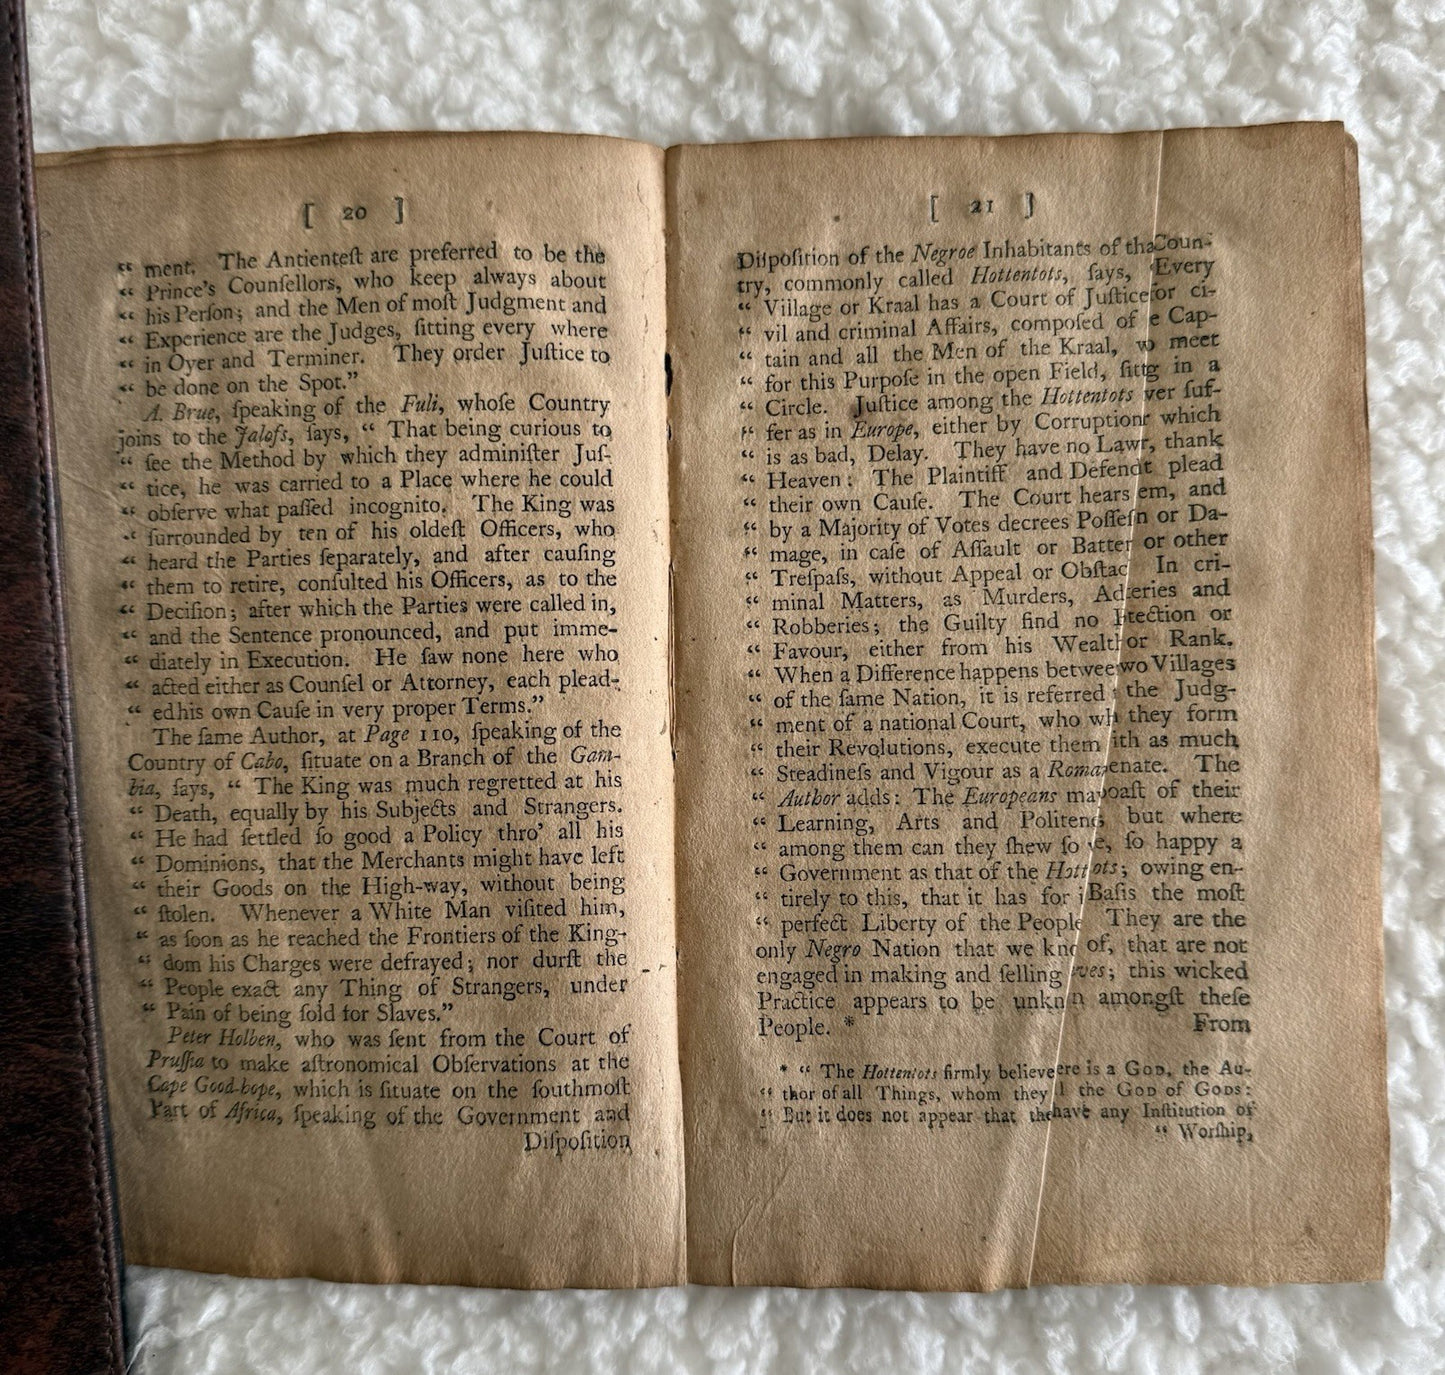 [ 20 ]
“ ment. The Antienteſt are preferred to be the
“ Prince's Counſellors, who keep always about
“ his Perſon; and the Men of moſt Judgment and
“ Experience are the Judges, ſitting every where
“ in Oyer and Terminer. They order Juſtice to
“ be done on the Spot.”
A. Brue, ſpeaking of the Fuli, whoſe Country
joins to the Jalofs, ſays, “ That being curious to
“ ſee the Method by which they adminiſter Juſ-
“ tice, he was carried to a Place where he could
“ obſerve what paſſed incognito. The King was
“ ſurrounded by ten of his oldeſt Officers, who
“ heard the Parties ſeparately, and after cauſing
“ them to retire, conſulted his Officers, as to the
“ Deciſion; after which the Parties were called in,
“ and the Sentence pronounced, and put imme-
“ diately in Execution. He ſaw none here who
“ acted either as Counſel or Attorney, each plead-
“ ed his own Cauſe in very proper Terms.”
The ſame Author, at Page 110, ſpeaking of the
Country of Cabo, ſituate on a Branch of the Gam-
bia, ſays, “ The King was much regretted at his
“ Death, equally by his Subjects and Strangers.
“ He had ſettled ſo good a Policy thro' all his
“ Dominions, that the Merchants might have left
“ their Goods on the High-way, without being
“ ſtolen. Whenever a White Man viſited him,
“ as ſoon as he reached the Frontiers of the King-
“ dom his Charges were defrayed; nor durſt the
“ People exact any Thing of Strangers, under
“ Pain of being ſold for Slaves.”
Peter Holben, who was ſent from the Court of
Pruſſia to make aſtronomical Obſervations at the
Cape Good-hope, which is ſituate on the ſouthmoſt
Part of Africa, ſpeaking of the Government and
Diſpoſition
[ 21 ]
Diſpoſition of the Negroe Inhabitants of tha Coun-
try, commonly called Hottentots, ſays, “Every
“ Village or Kraal has a Court of Juſtice for ci-
“ vil and criminal Affairs, compoſed of e Cap-
“ tain and all the Men of the Kraal, w o meet
“ for this Purpoſe in the open Field, ſitt g in a
“ Circle. Juſtice among the Hottentots ver ſuf-
“ fer as in Europe, either by Corruption r which
“ is as bad, Delay. They have no Law r, thank
“ Heaven: The Plaintiff and Defend t plead
“ their own Cauſe. The Court hears em, and
“ by a Majority of Votes decrees Poſſeſ n or Da-
“ mage, in caſe of Aſſault or Batter or other
“ Treſpaſs, without Appeal or Obſtac In cri-
“ minal Matters, as Murders, Ad eries and
“ Robberies; the Guilty find no tection or
“ Favour, either from his Wealth or Rank.
“ When a Difference happens betwee wo Villages
“ of the ſame Nation, it is referred the Judg-
“ ment of a national Court, who wh they form
“ their Revolutions, execute them ith as much
“ Steadineſs and Vigour as a Roma enate. The
“ Author adds: The Europeans ma oaſt of their
“ Learning, Arts and Politene but where
“ among them can they ſhew ſo e, ſo happy a
“ Government as that of the Hott ots; owing en-
“ tirely to this, that it has for i Baſis the moſt
“ perfect Liberty of the People They are the
only Negro Nation that we kno of, that are not
engaged in making and ſelling ves; this wicked
Practice appears to be unkn n amongſt theſe
People. *
From
* “ The Hottentots firmly believe ere is a God, the Au-
“ thor of all Things, whom they l the God of Gods:
“ But it does not appear that the have any Inſtitution of
“ Worſhip,